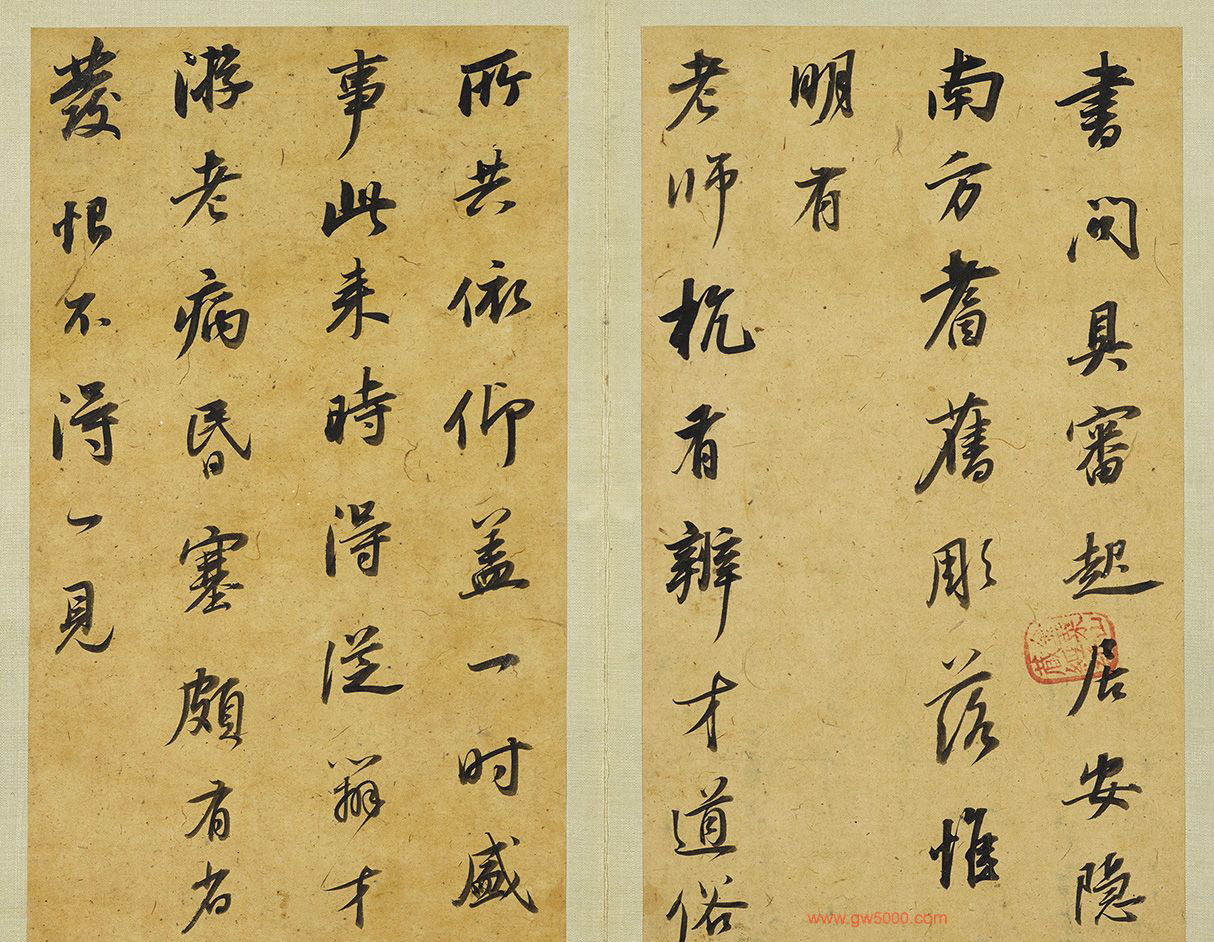 書問具審起居安隱
南方耆舊彫落惟
明有
老師杭有辨才道俗
所共依仰盖一时盛
事此来時得從辯才
游老病昏塞頗有省
發恨不得一見
www.gw5000.com